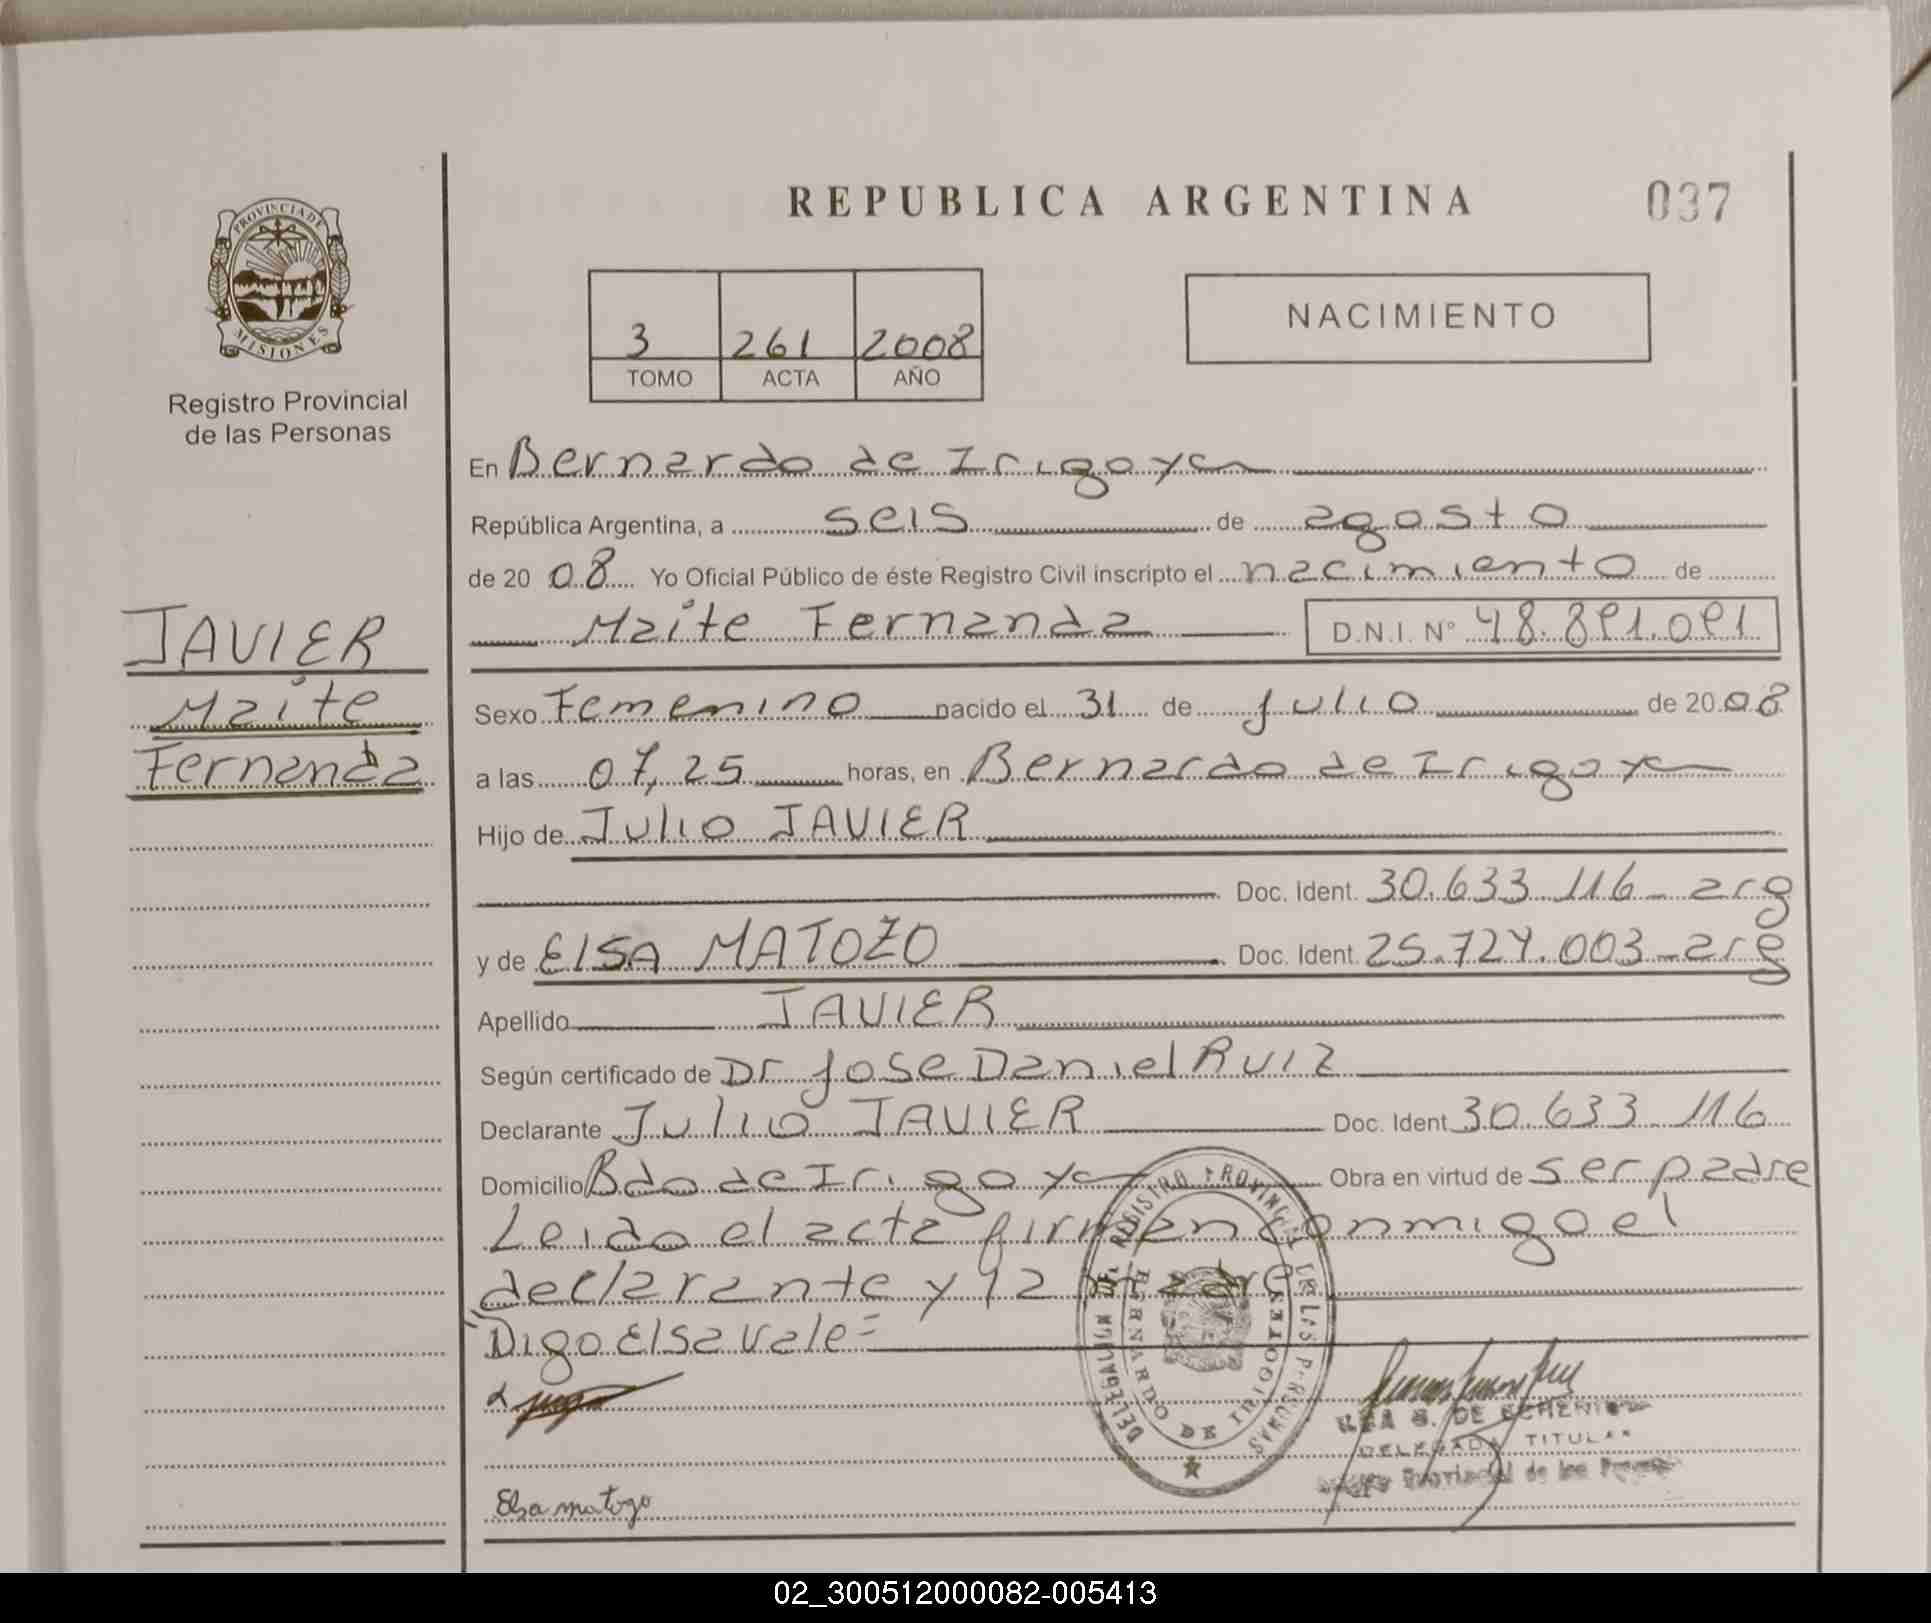 REPUBLICA ARGENTINA
037
PROVINCIA DE
MISIONES
Registro Provincial
de las Personas
3 261 2008
TOMO ACTA AÑO
NACIMIENTO
JAVIER
Maite
Fernanda
En Bernardo de Irigoyen
República Argentina, a seis de agosto
de 20 08 Yo Oficial Público de éste Registro Civil inscripto el nacimiento de
Maite Fernanda D.N.I. Nº 48.891.091
Sexo Femenino nacido el 31 de julio de 20 08
a las 07,25 horas, en Bernardo de Irigoyen
Hijo de Julio JAVIER
Doc. Ident. 30.633.116 - arg
y de ElSA MATOZO Doc. Ident. 25.724.003 - arg
Apellido JAVIER
Según certificado de Dr Jose Daniel Ruiz
Declarante Julio JAVIER Doc. Ident 30.633.116
Domicilio Bdo de Irigoyen Obra en virtud de ser padre
Leido el acta firman conmigo el
declarante y la madre
"Digo Elsa vale =
DELEGACION DEL REGISTRO PROVINCIAL DE LAS PERSONAS
BERNARDO DE IRIGOYEN
S. DE ECHENIQUE
DELEGADA TITULAR
Provincial de las
Elsa matozo
02_300512000082-005413